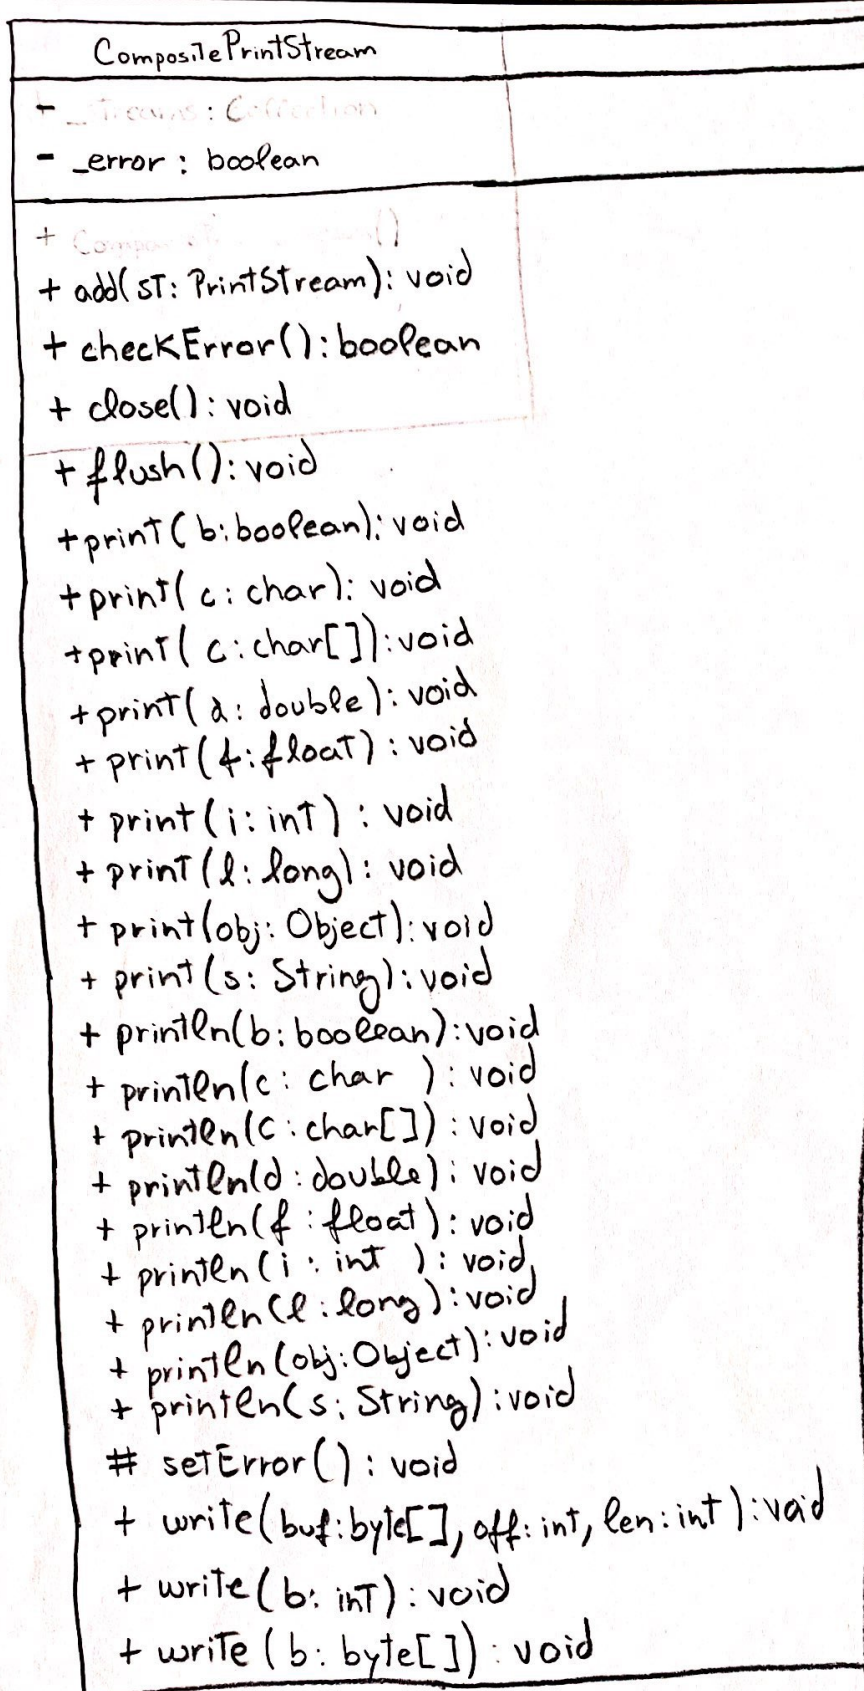 CompositePrintStream
- _streams : Collection
- _error : boolean
+
+ add(st: PrintStream): void
+ checkError(): boolean
+ close(): void
+ flush(): void
+ print( b: boolean): void
+ print( c: char): void
+ print( c: char[]): void
+ print( d: double): void
+ print( f: float) : void
+ print( i: int) : void
+ print( l: long): void
+ print(obj: Object): void
+ print(s: String): void
+ println(b: boolean): void
+ println(c: char ): void
+ println(c: char[]): void
+ println(d: double): void
+ println(f : float): void
+ println(i : int ): void
+ println(l : long): void
+ println(obj: Object): void
+ println(s: String): void
# setError(): void
+ write(buf: byte[], off: int, len: int): void
+ write(b: int): void
+ write(b: byte[]): void